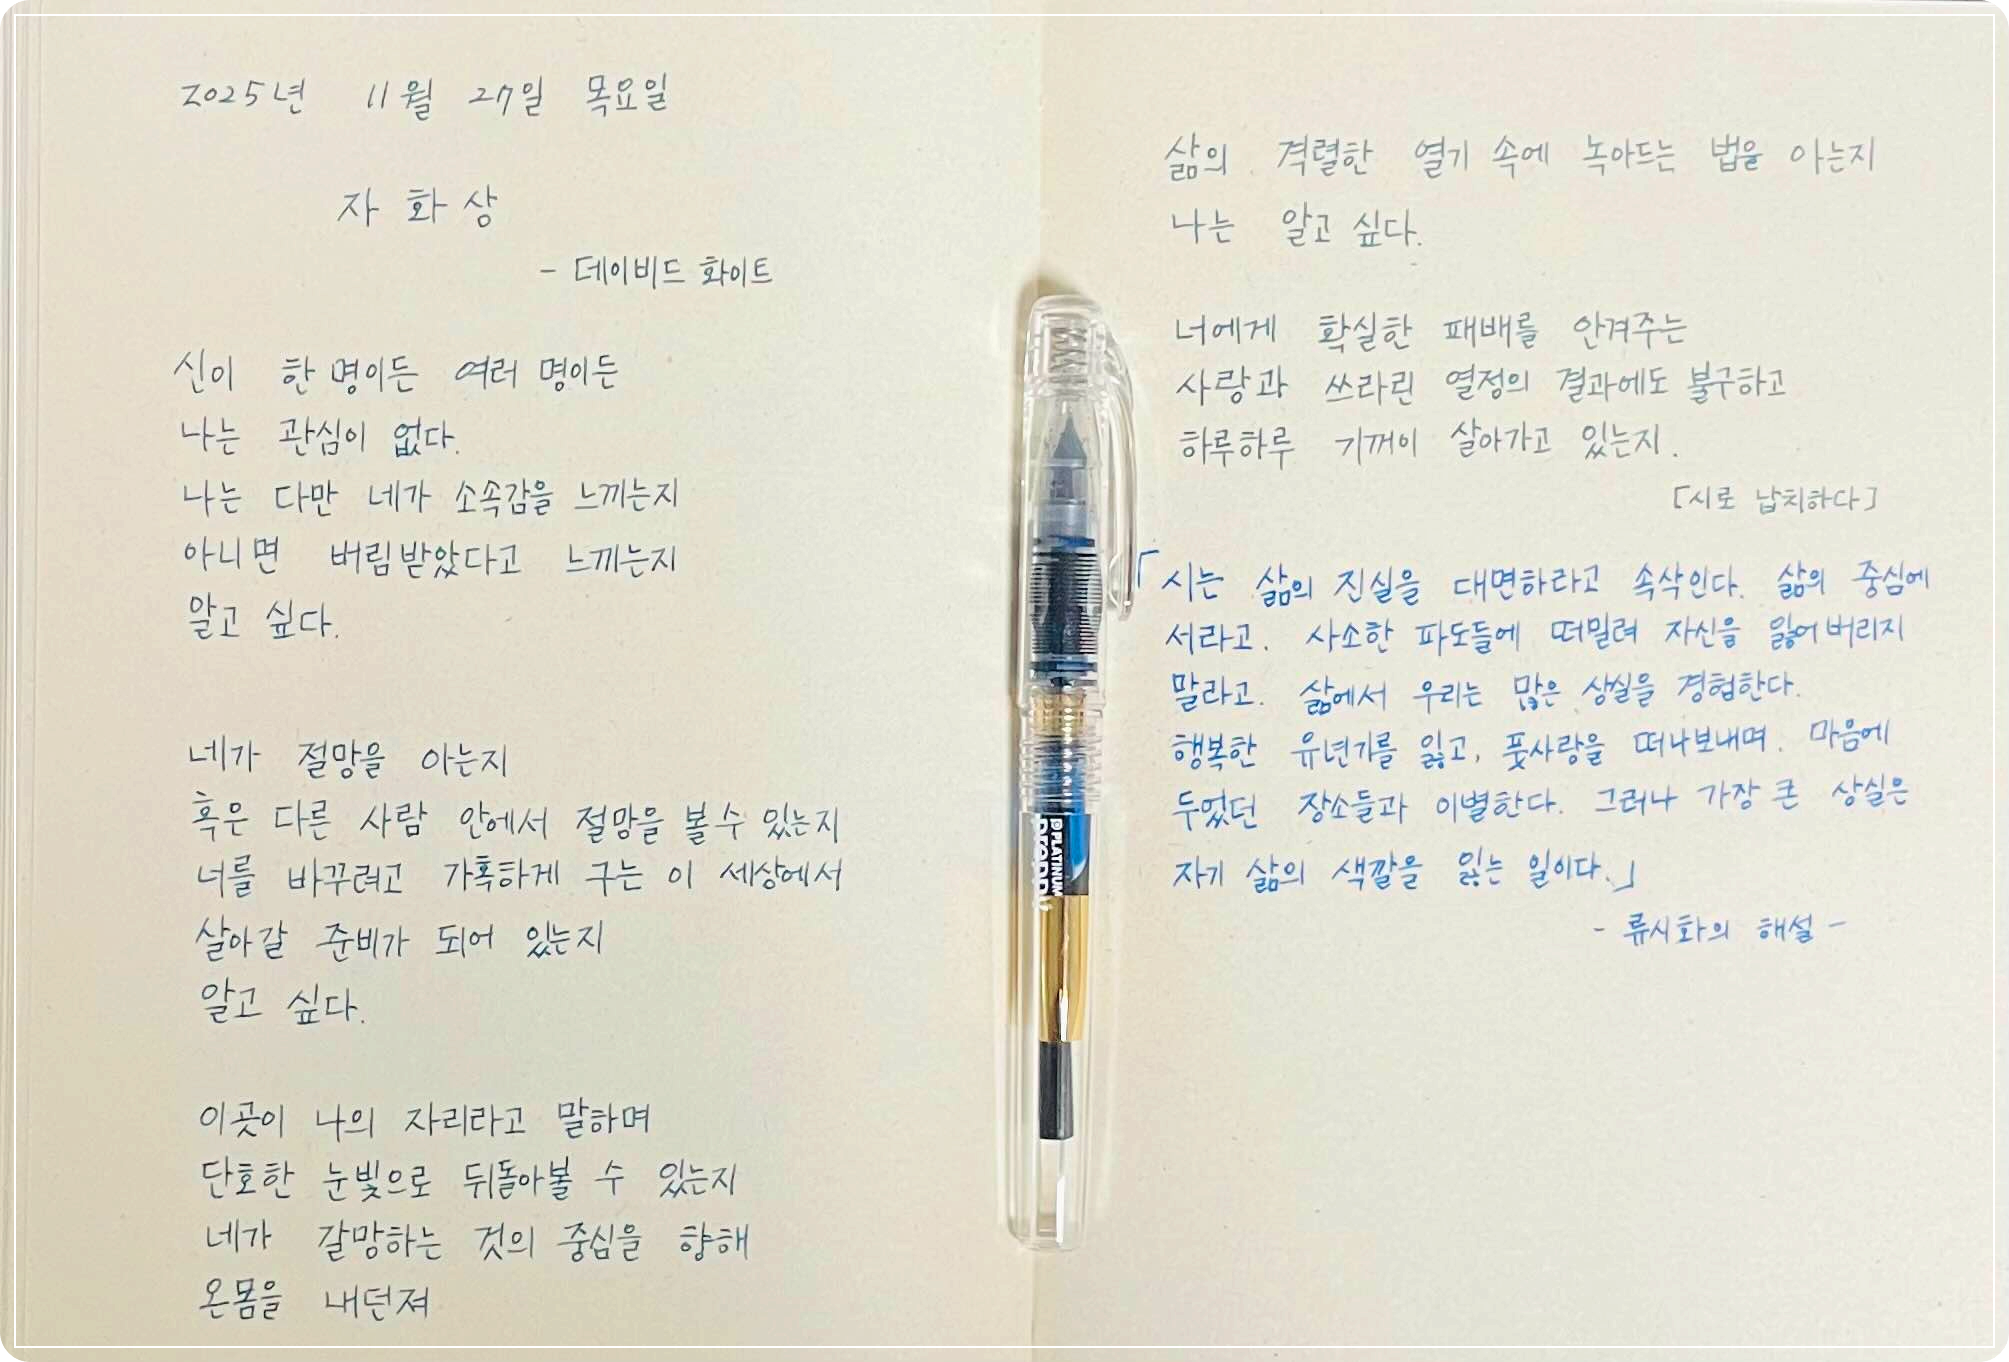 2025년 11월 27일 목요일
자화상
- 데이비드 화이트
신이 한 명이든 여러 명이든
나는 관심이 없다.
나는 다만 네가 소속감을 느끼는지
아니면 버림받았다고 느끼는지
알고 싶다.
네가 절망을 아는지
혹은 다른 사람 안에서 절망을 볼 수 있는지
너를 바꾸려고 가혹하게 구는 이 세상에서
살아갈 준비가 되어 있는지
알고 싶다.
이곳이 나의 자리라고 말하며
단호한 눈빛으로 뒤돌아볼 수 있는지
네가 갈망하는 것의 중심을 향해
온몸을 내던져
삶의 격렬한 열기 속에 녹아드는 법을 아는지
나는 알고 싶다.
너에게 확실한 패배를 안겨주는
사랑과 쓰라린 열정의 결과에도 불구하고
하루하루 기꺼이 살아가고 있는지.
[시로 납치하다]
「시는 삶의 진실을 대면하라고 속삭인다. 삶의 중심에
서라고. 사소한 파도들에 떠밀려 자신을 잃어버리지
말라고. 삶에서 우리는 많은 상실을 경험한다.
행복한 유년기를 잃고, 풋사랑을 떠나보내며. 마음에
두었던 장소들과 이별한다. 그러나 가장 큰 상실은
자기 삶의 색깔을 잃는 일이다.」
- 류시화의 해설 -
PLATINUM
PREPPY